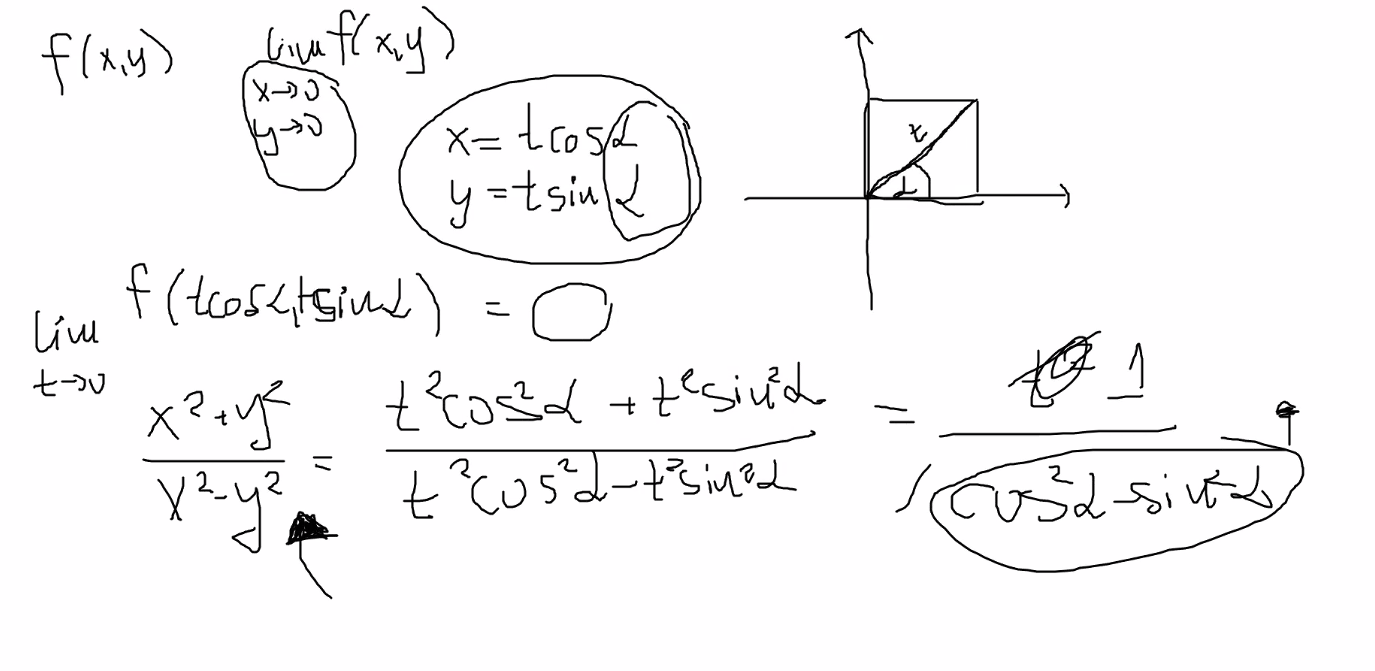 f(x,y) lim f(x,y)
x→0
y→0
x = t cos α
y = t sin α
t
α
lim f(t cos α, t sin α) =
t→0
x²+y² / x²-y² = t²cos²α + t²sin²α / t²cos²α - t²sin²α = 1 / cos²α - sin²α